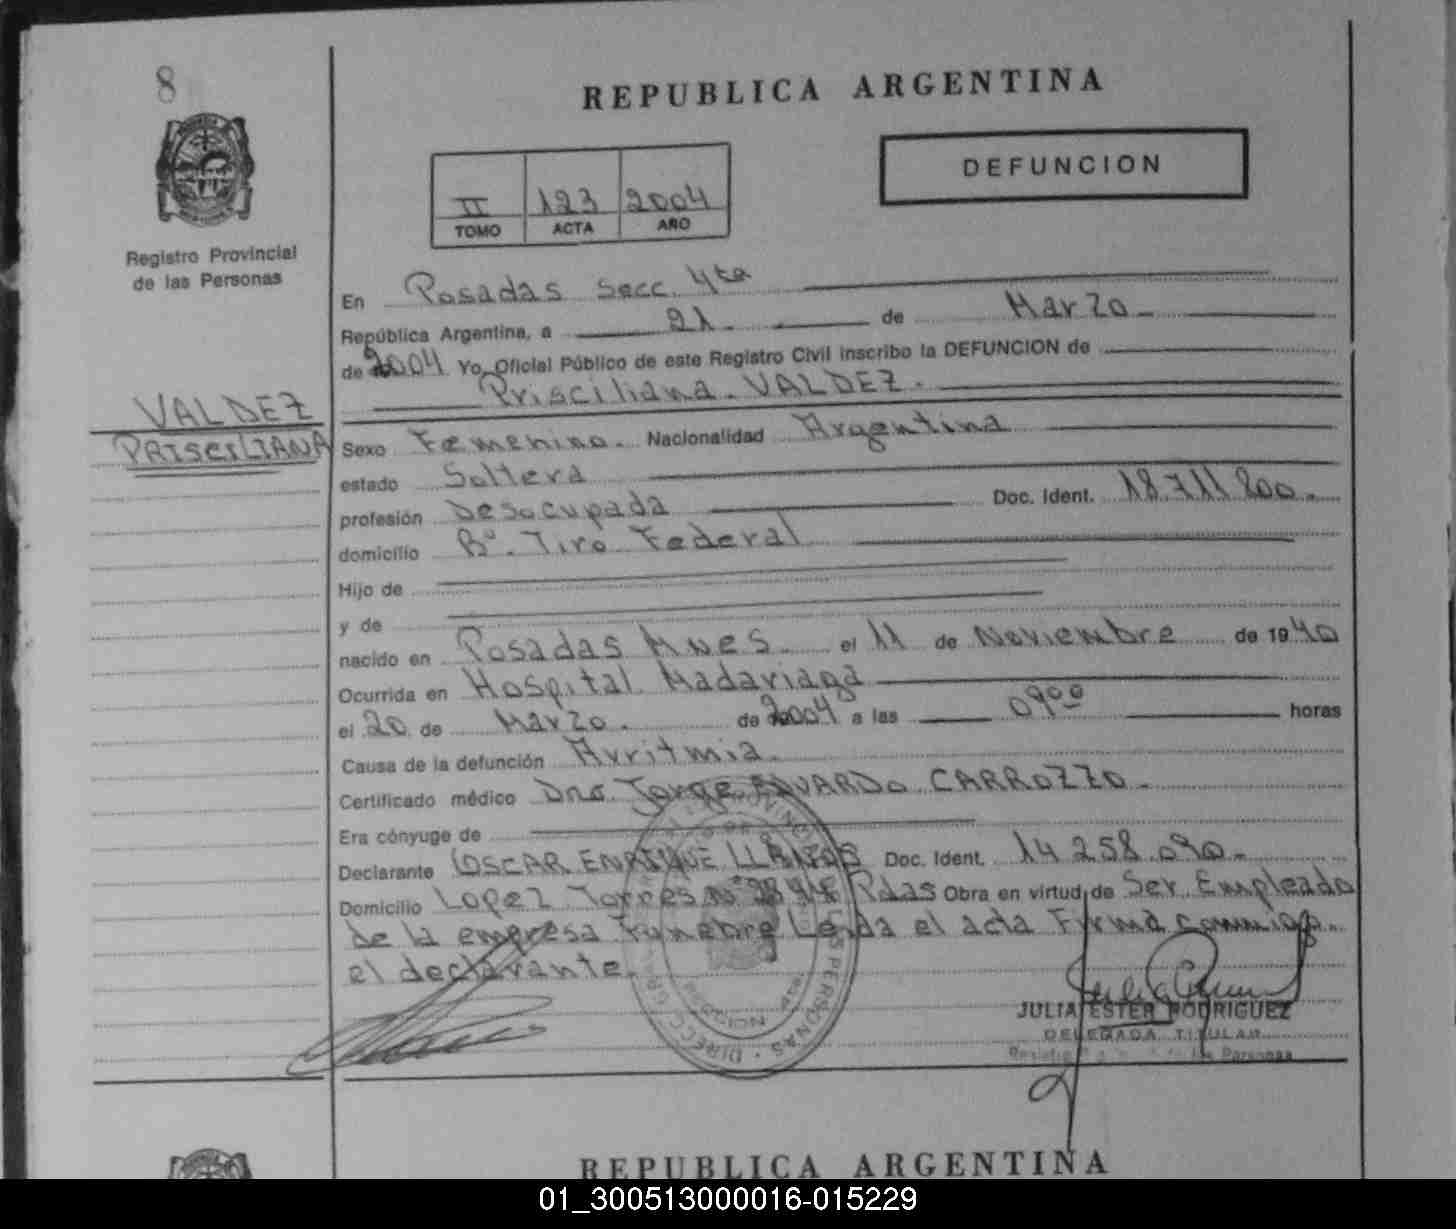 8
REPUBLICA ARGENTINA
DEFUNCION
II 123 2004
TOMO ACTA AÑO
Registro Provincial
de las Personas
En Posadas Secc. 4ta
República Argentina, a 21 de Marzo
de 2004 Yo, Oficial Público de este Registro Civil inscribo la DEFUNCION de
Prisciliana VALDEZ.
VALDEZ
PRISCILIANA
Sexo Femenino. Nacionalidad Argentina
estado Soltera
profesión Desocupada Doc. Ident. 18.711.800.
domicilio Bº. Tiro Federal
Hijo de
y de
nacido en Posadas Mnes. el 11 de Noviembre de 1940
Ocurrida en Hospital Madariaga
el 20 de Marzo. de 2004 a las 09⁰⁰ horas
Causa de la defunción Arritmia.
Certificado médico Dr. Jorge EDUARDO CARROZZO.
Era cónyuge de
Declarante OSCAR ENRIQUE LLANOS Doc. Ident. 14.258.090.
Domicilio Lopez Torres Nº Pdas Obra en virtud de Ser Empleado
de la empresa Funebre Leida el acta Firma conmigo
el declarante.
JULIA ESTER RODRIGUEZ
DELEGADA TITULAR
Personas
REPUBLICA ARGENTINA
01_300513000016-015229